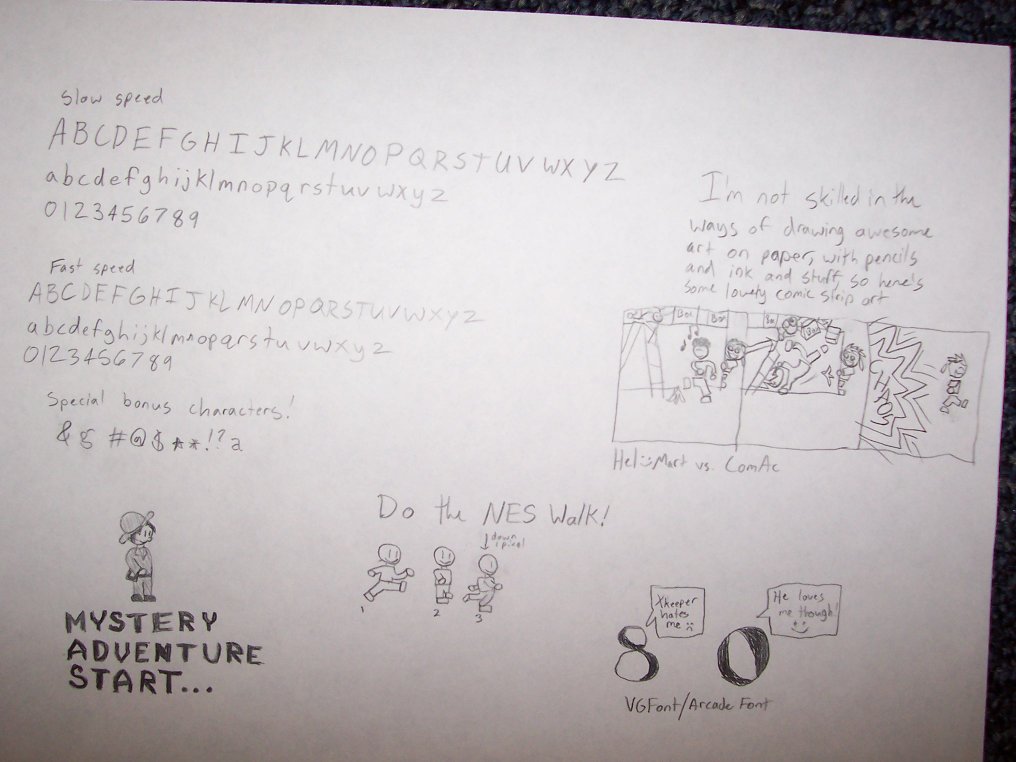 Slow speed
ABCDEFGHIJKLMNOPQRSTUVWXYZ
abcdefghijklmnopqrstuvwxyz
0123456789
Fast speed
ABCDEFGHIJKLMNOPQRSTUVWXYZ
abcdefghijklmnopqrstuvwxyz
0123456789
Special bonus characters!
& & #@$**!?a
I'm not skilled in the
ways of drawing awesome
art on paper, with pencils
and ink and stuff, so here's
some lovely comic strip art
Hel Mart vs. ComAc
Do the NES Walk!
down
1 pixel
1 2 3
MYSTERY
ADVENTURE
START...
Xkeeper
hates
me :(
He loves
me though!
8 0
VGFont/Arcade Font